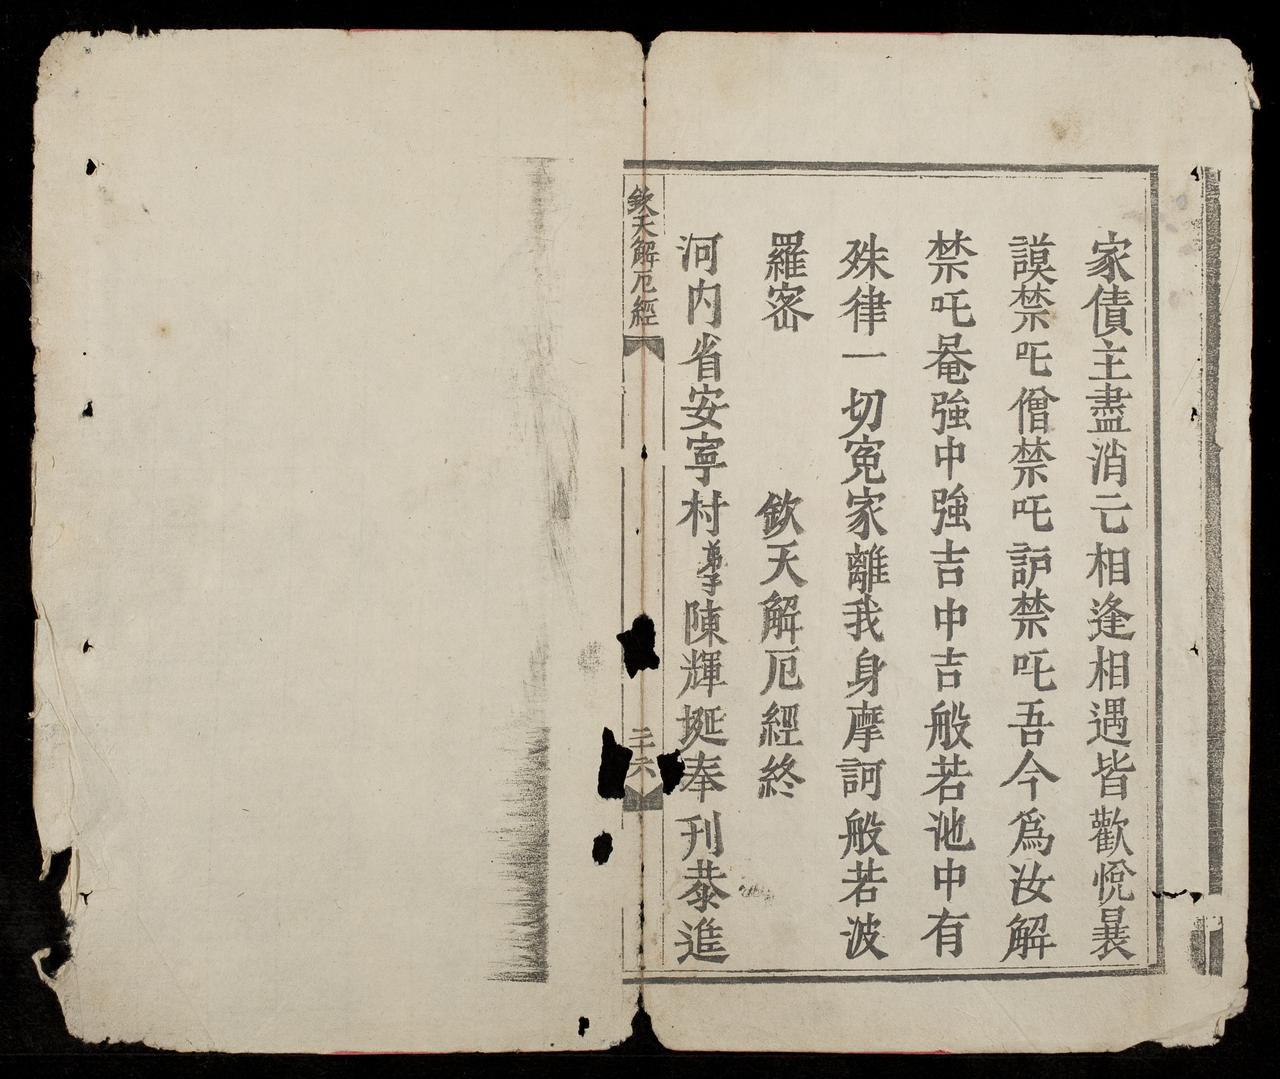 家債主盡消亡相逢相遇皆歡悅曩
謨禁吒僧禁吒訡禁吒吾今爲汝解
禁吒菴強中強吉中吉般若池中有
殊律一切冤家離我身摩訶般若波
羅密
欽天解厄經終
河内省安寧村弟子陳輝埏奉刊恭進
欽天解厄經
二十六